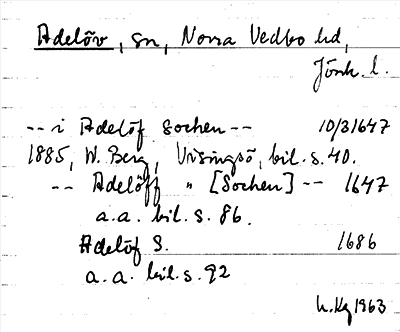 Adelöv, sn, Norra Vedbo hd,
Jönk. l.
-- i Adelöf Sochen -- 10/3 1647
1885, W. Berg, Visingsö, bil. s. 40.
-- Adelöff " [Sochen] -- 1647
a.a. bil. s. 86.
Adelöf S. 1686
a.a. bil. s. 92
1963